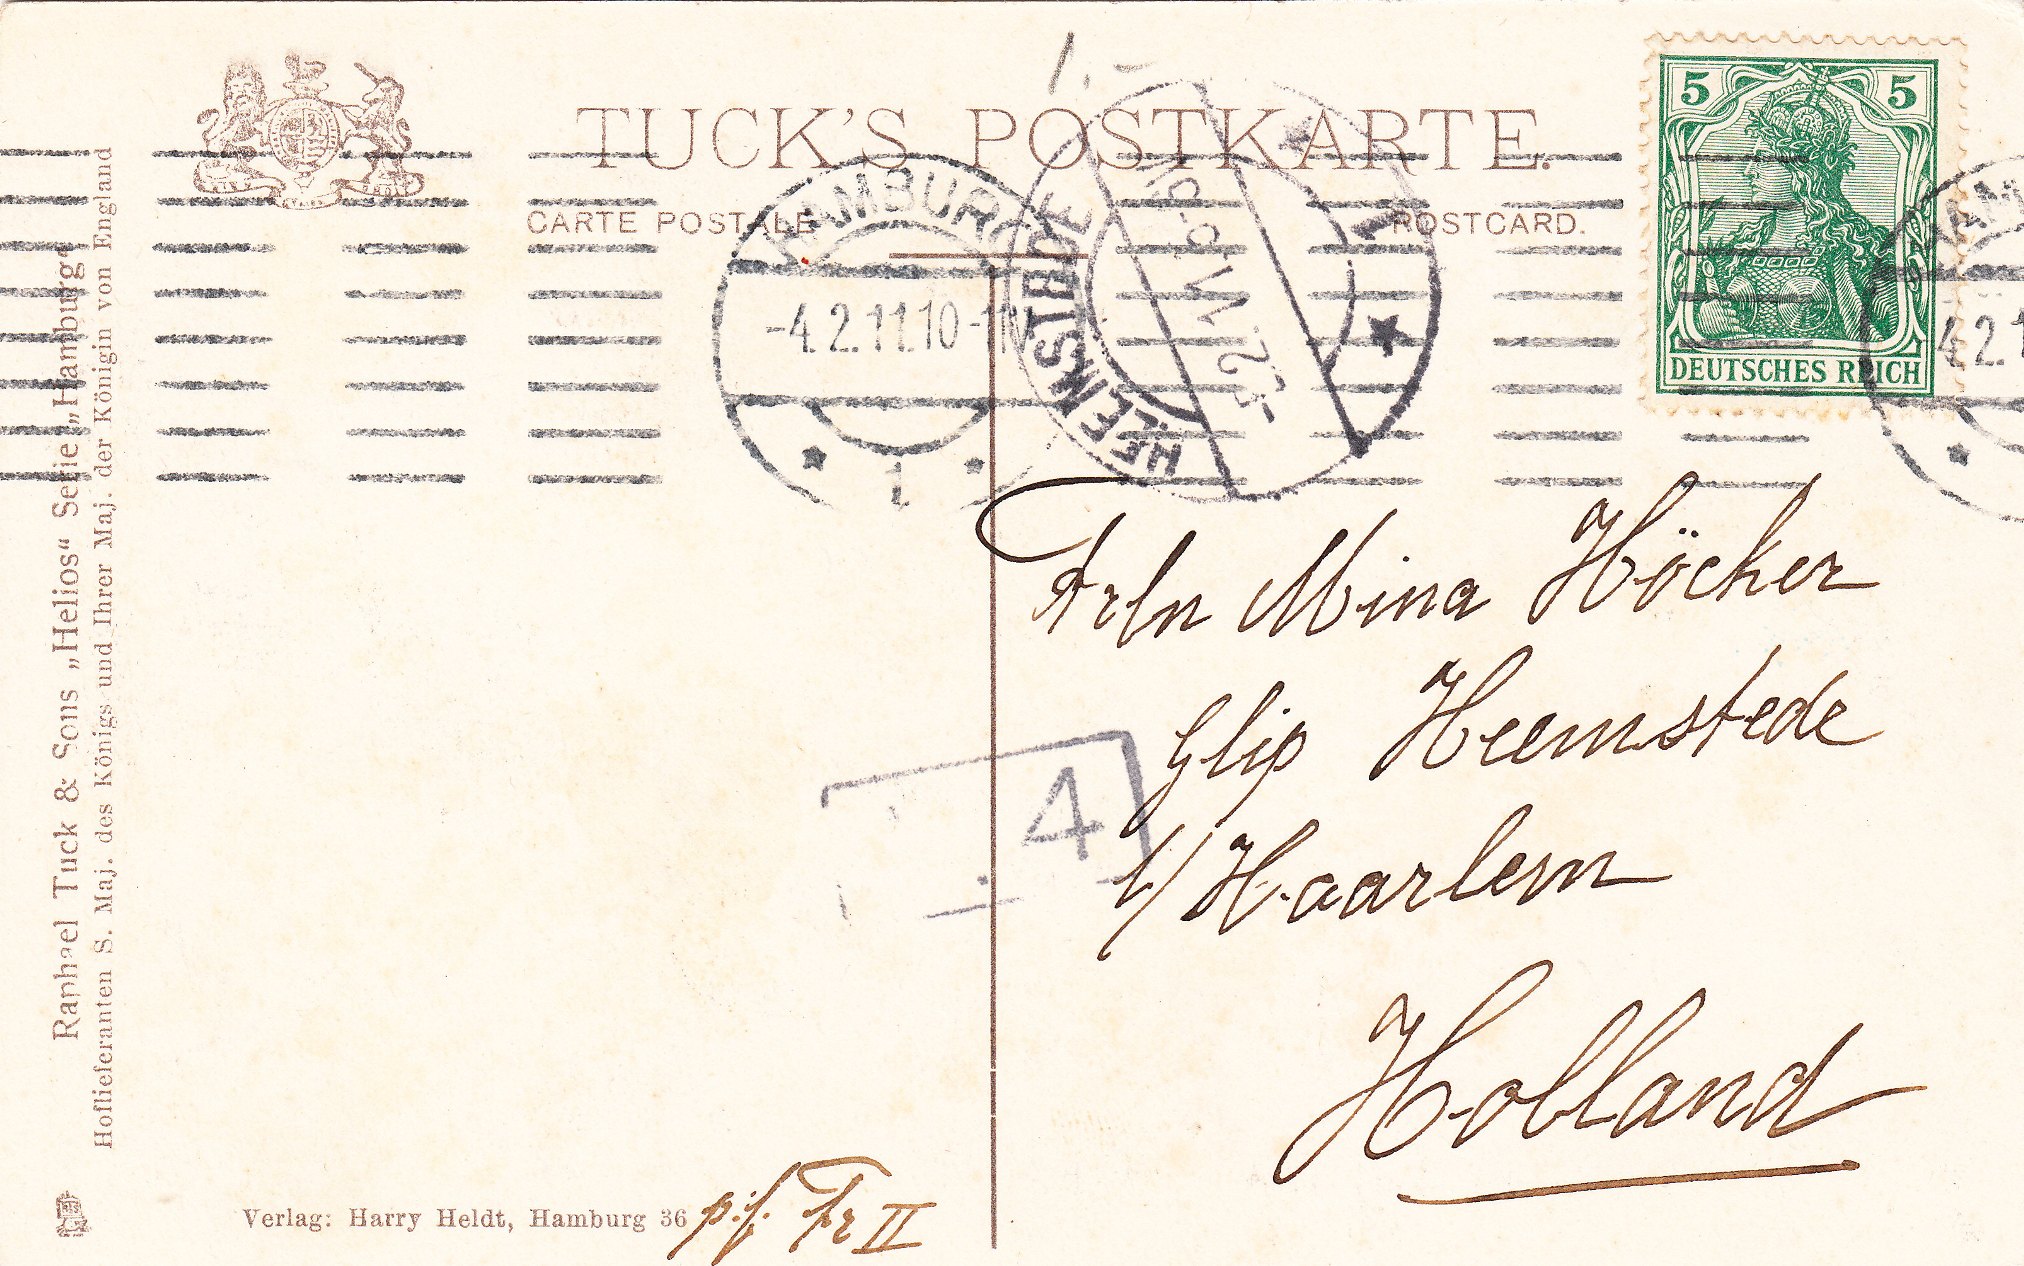 TUCK'S POSTKARTE.
CARTE POSTALE
POSTCARD.
5 5
DEUTSCHES REICH
HAMBURG
-4.2.11.10-11V
* 1 *
HEEMSTEDE
4.2.1
4
Frln Mina Höcker
Glip Heemstede
b/ Haarlem
Holland
Raphael Tuck & Sons „Helios“ Serie „Hamburg“
Hoflieferanten S. Maj. des Königs und Ihrer Maj. der Königin von England
Verlag: Harry Heldt, Hamburg 36
p.f. Fr II